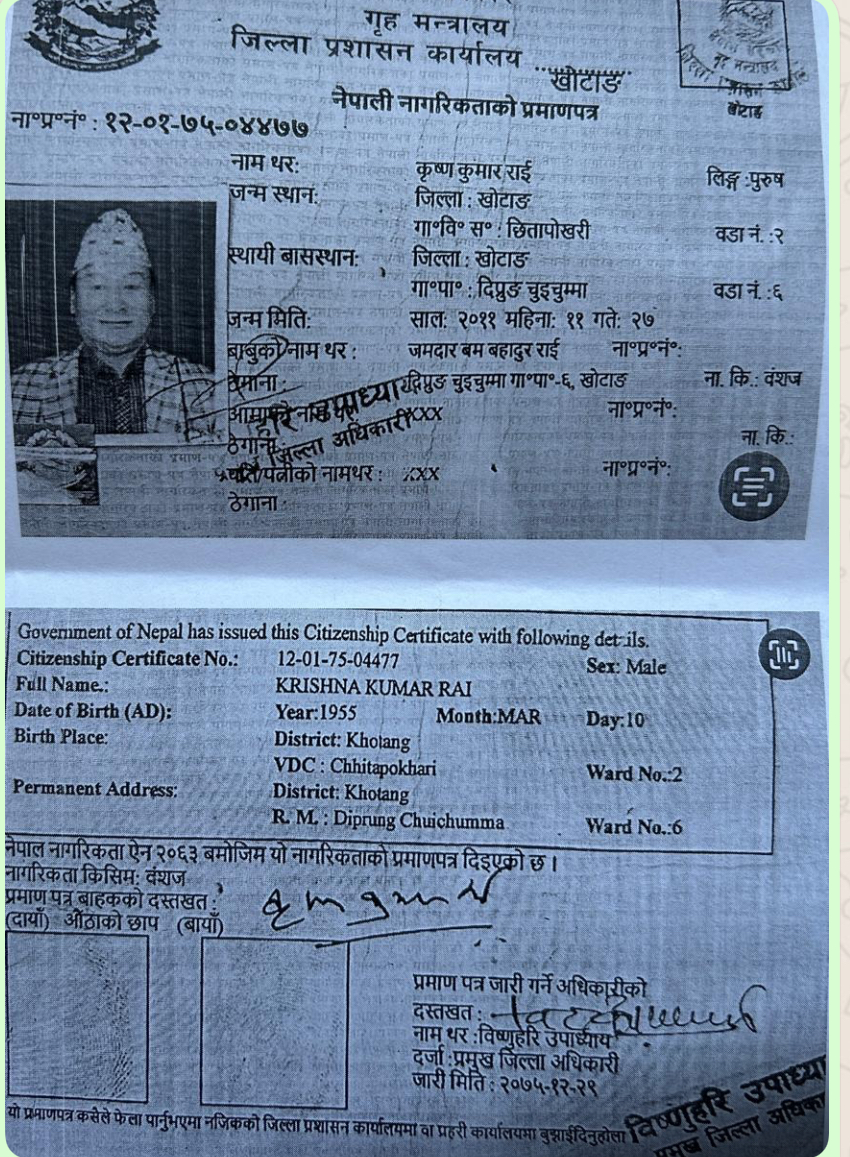 गृह मन्त्रालय
जिल्ला प्रशासन कार्यालय ...खोटाङ
नेपाली नागरिकताको प्रमाणपत्र
खोटाङ
ना०प्र०नं० : १२-०१-७५-०४४७७
नाम थर: कृष्ण कुमार राई लिङ्ग :पुरुष
जन्म स्थान: जिल्ला : खोटाङ
गा०वि० स० : छितापोखरी वडा नं. :२
स्थायी बासस्थान: जिल्ला : खोटाङ
गा०पा० : दिप्रुङ चुइचुम्मा वडा नं. :६
जन्म मिति: साल: २०११ महिना: ११ गते: २७
बाबुको नाम थर : जमदार बम बहादुर राई ना०प्र०नं०:
ठेगाना : दिप्रुङ चुइचुम्मा गा०पा०-६, खोटाङ ना. कि.: वंशज
आमाको नाम थर: xxx ना०प्र०नं०:
ठेगाना : ना. कि.:
पति/पत्नीको नामथर : xxx ना०प्र०नं०:
ठेगाना :
हरि उपाध्या
जिल्ला अधिकारी
Government of Nepal has issued this Citizenship Certificate with following details.
Citizenship Certificate No.: 12-01-75-04477 Sex: Male
Full Name.: KRISHNA KUMAR RAI
Date of Birth (AD): Year:1955 Month:MAR Day:10
Birth Place: District: Khotang
VDC : Chhitapokhari Ward No.:2
Permanent Address: District: Khotang
R. M. : Diprung Chuichumma Ward No.:6
नेपाल नागरिकता ऐन २०६३ बमोजिम यो नागरिकताको प्रमाणपत्र दिइएको छ ।
नागरिकता किसिम: वंशज
प्रमाण पत्र बाहकको दस्तखत :
(दायाँ) औंठाको छाप (बायाँ)
प्रमाण पत्र जारी गर्ने अधिकारीको
दस्तखत :
नाम थर :विष्णुहरि उपाध्याय
दर्जा :प्रमुख जिल्ला अधिकारी
जारी मिति : २०७५-१२-२९
यो प्रमाणपत्र कसैले फेला पार्नुभएमा नजिकको जिल्ला प्रशासन कार्यालयमा वा प्रहरी कार्यालयमा बुझाईदिनुहोला
विष्णुहरि उपाध्या
प्रमुख जिल्ला अधिका